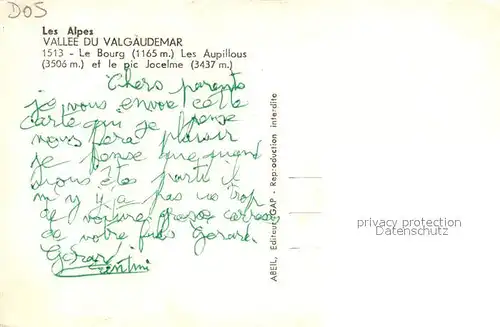 DOS
Les Alpes
VALLEE DU VALGAUDEMAR
1513 - Le Bourg (1165 m.) Les Aupillous
(3506 m.) et le pic Jocelme (3437 m.)
Chers parents
je vous envoie cette
carte qui je pense
vous fera plaisir
je pense que quand
vous êtes parti il
n'y y a pas us trop
de voiture grosse caresse
de votre fils Gerard.
Gerard
ABEIL, Editeur, GAP - Reproduction interdite
privacy protection